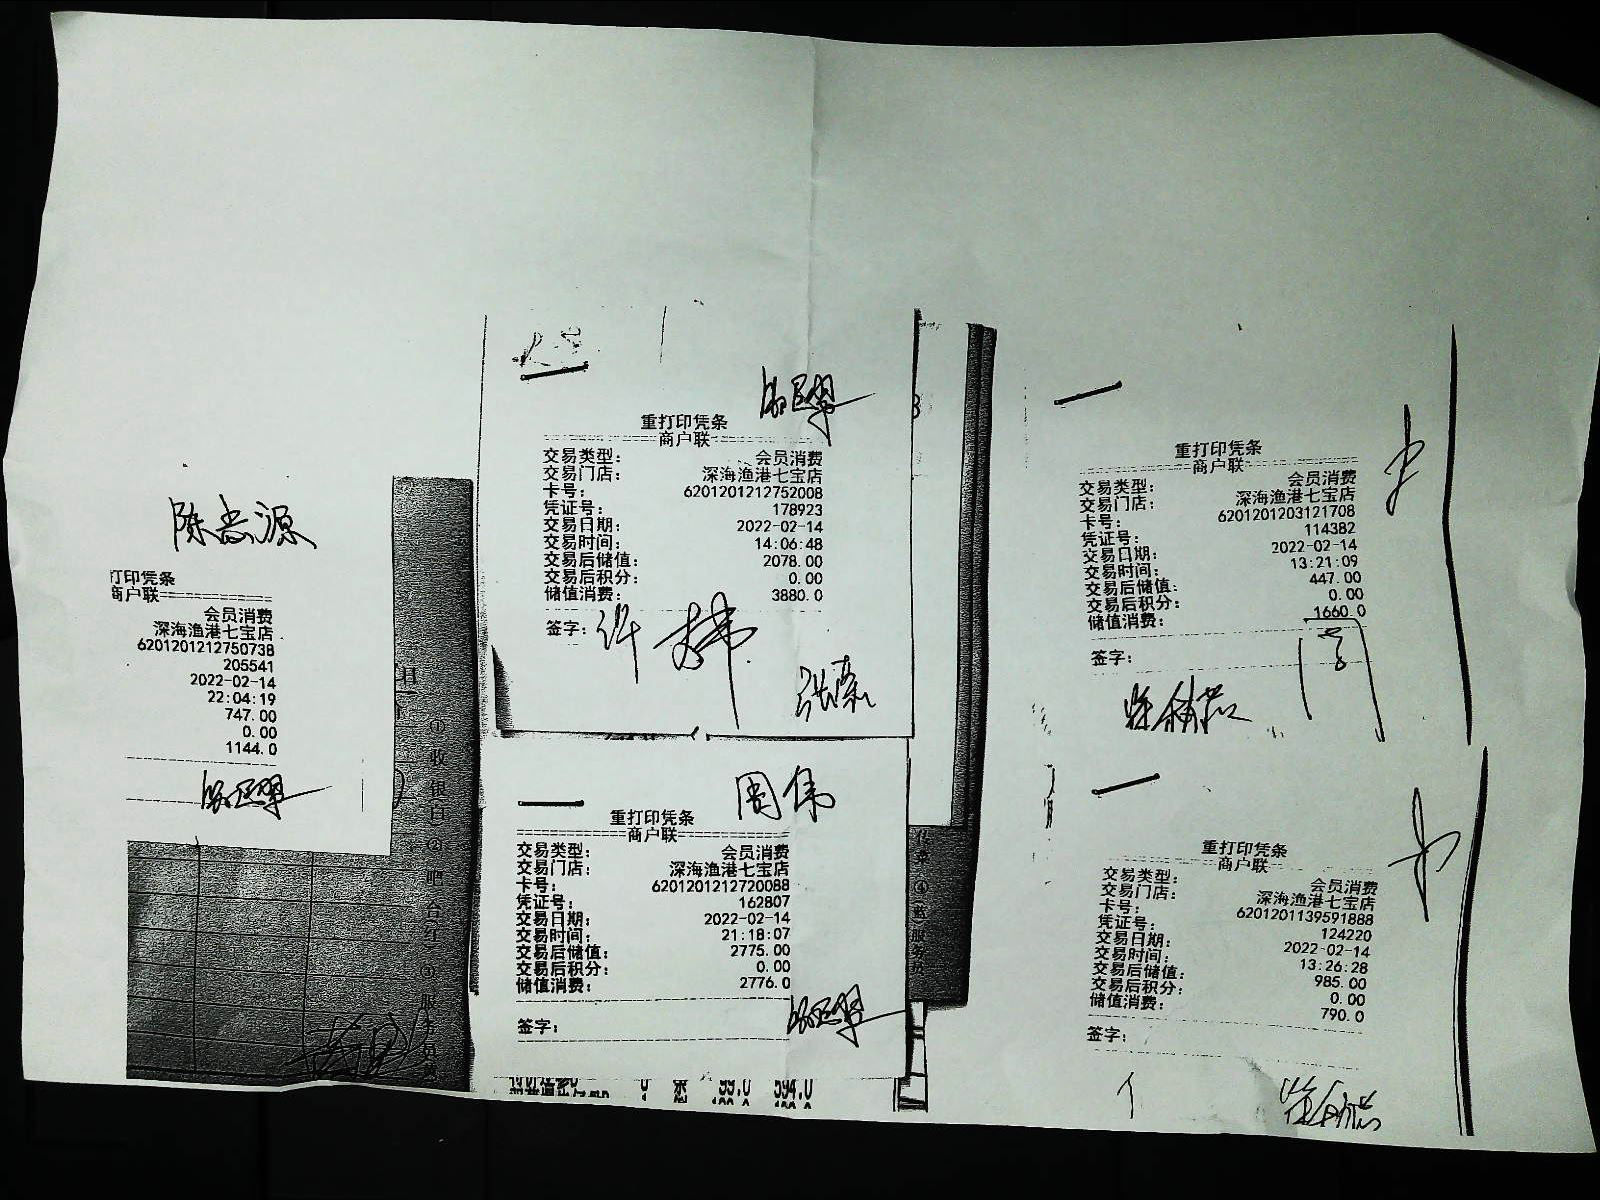 陈志源
打印凭条
商户联
会员消费
深海渔港七宝店
6201201212750738
205541
2022-02-14
22:04:19
747.00
0.00
1144.0
重打印凭条
商户联
交易类型: 会员消费
交易门店: 深海渔港七宝店
卡号: 6201201212752008
凭证号: 178923
交易日期: 2022-02-14
交易时间: 14:06:48
交易后储值: 2078.00
交易后积分: 0.00
储值消费: 3880.0
签字:
周伟
重打印凭条
商户联
交易类型: 会员消费
交易门店: 深海渔港七宝店
卡号: 6201201212720088
凭证号: 162807
交易日期: 2022-02-14
交易时间: 21:18:07
交易后储值: 2775.00
交易后积分: 0.00
储值消费: 2776.0
签字:
99.0 594.0
重打印凭条
商户联
交易类型: 会员消费
交易门店: 深海渔港七宝店
卡号: 6201201203121708
凭证号: 114382
交易日期: 2022-02-14
交易时间: 13:21:09
交易后储值: 447.00
交易后积分: 0.00
储值消费: 1660.0
签字:
重打印凭条
商户联
交易类型: 会员消费
交易门店: 深海渔港七宝店
卡号: 6201201139591888
凭证号: 124220
交易日期: 2022-02-14
交易时间: 13:26:28
交易后储值: 985.00
交易后积分: 0.00
储值消费: 790.0
签字: